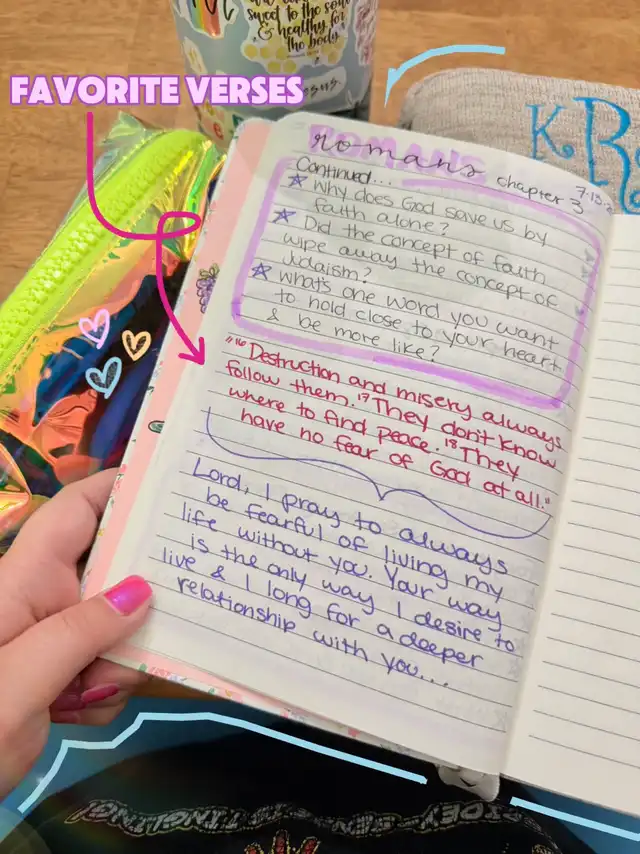 sweet to the soul
& healthy for
the body.
FAVORITE VERSES
KR
romans
Continued... chapter 3
☆ Why does God save us by
faith alone?
☆ Did the concept of faith
wipe away the concept of
Judaism?
☆ What's one word you want
to hold close to your heart
& be more like?
"¹⁶ Destruction and misery always
follow them. ¹⁷ They don't know
where to find peace. ¹⁸ They
have no fear of God at all."
Lord, I pray to always
be fearful of living my
life without you. Your way
is the only way I desire to
live & I long for a deeper
relationship with you...